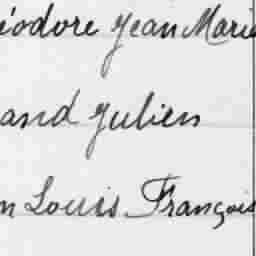 éodore Jean Marie
and Julien
n Louis François